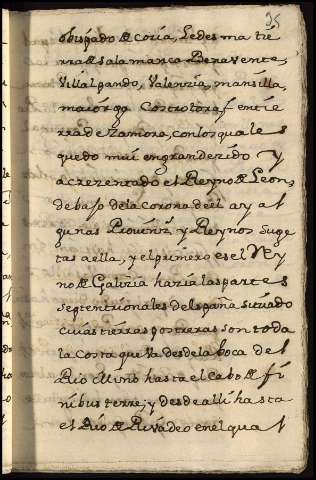 35
obispado de Coria, Ledesma tie
rra de Salamanca Benavente,
Villalpando, Valenzia, mansilla,
maiorga Castrotoraf entie
rra de Zamora, con los quale s
quedo mui engrandezido y
acrezentado el Reyno de Leon,
debajo de la corona de el ay al
gunas Provinz.ˢ y Reynos suge
tas a ella, y el primero es el Rey
no de Galizia hazia las partes
septentrionales de españa situado
cuias tierras postreras son toda
la costa que va desde la boca de l
Rio Miño hasta el Cabo de fi
nibus terre; y desde alli hasta
el Rio de Rivadeo en el qual